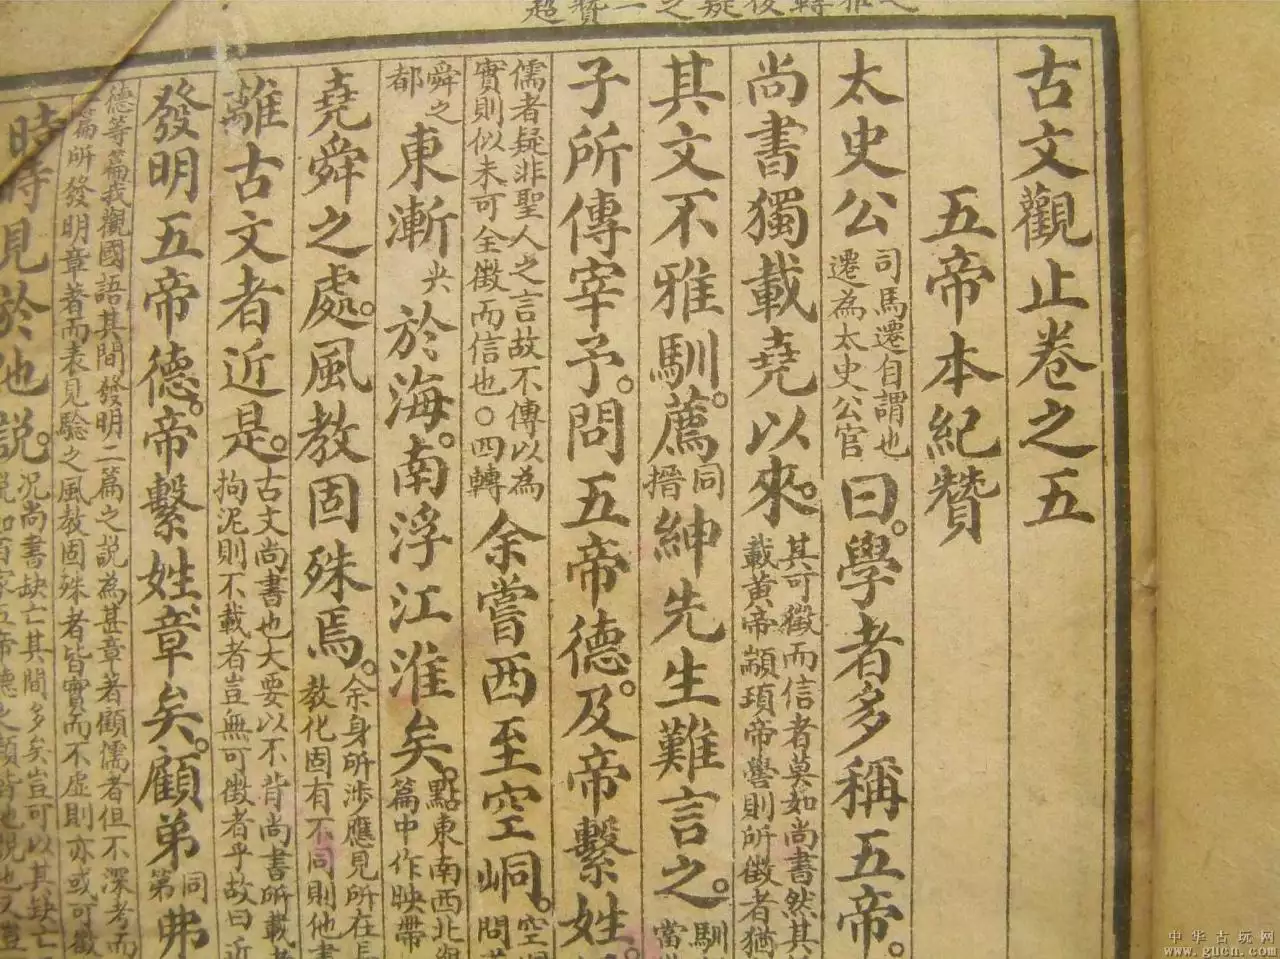 古文觀止卷之五
五帝本紀贊
太史公司馬遷自謂也遷為太史公官曰。學者多稱五帝。
尚書獨載堯以來。其可徵而信者莫如尚書然其載黃帝顓頊帝嚳則所徵者猶
其文不雅馴。薦同搢紳先生難言之。馴當
子所傳宰予。問五帝德。及帝繫姓
儒者疑非聖人之言故不傳以為實則似未可全徵而信也〇四轉余嘗西至空峒。空問
舜之都東漸尖於海。南浮江淮矣。點東南西北篇中作映帶
堯舜之處。風教固殊焉。余身所涉應見所在教化固有不同則他
離古文者近是。古文尚書也大要以不背尚書所載拘泥則不載者豈無可徵者乎故曰近
發明五帝德。帝繫姓章矣。顧弟同第弗
德等篇我觀國語其間發明二篇之說為甚章著顧儒者但不深考而篇所發明章著而表見驗之風教固殊者皆實而不虛則亦或可徵
時見於他說。况尚書缺亡其間多矣豈可以其缺亡
中华古玩网
www.gucn.com